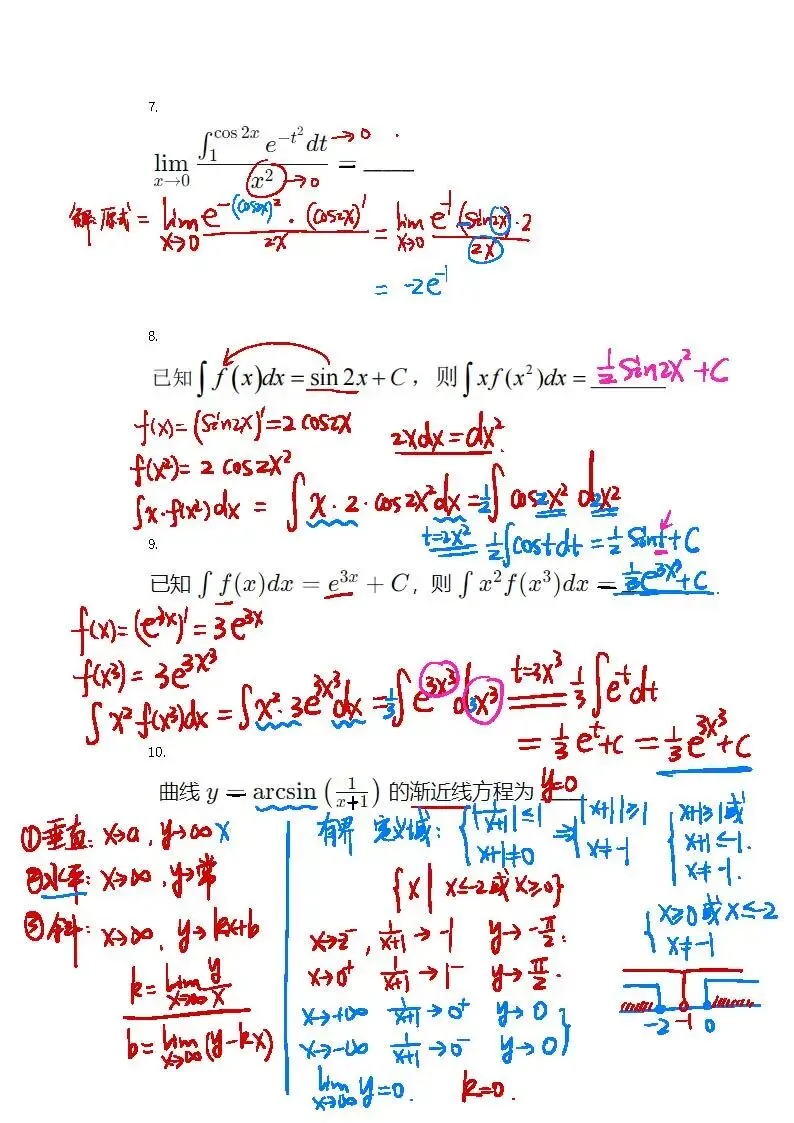 7.
lim x→0 ∫₁^{cos 2x} e^{-t²} dt / x² = ____ →0 →0
解: 原式 = lim x→0 e^{-(cos2x)²} · (cos2x)' / 2x = lim x→0 e^{-1} (-sin2x)·2 / 2x
= -2e^{-1}
8.
已知 ∫ f(x)dx = sin 2x + C，则 ∫ xf(x²)dx = ½ sin2x² + C
f(x) = (sin2x)' = 2 cos2x
2xdx = dx².
f(x²) = 2 cos2x²
∫x·f(x²)dx = ∫ x·2·cos2x² dx = ½ ∫ cos2x² d2x²
t=2x² ½∫cost dt = ½ sint + C
9.
已知 ∫ f(x)dx = e^{3x} + C，则 ∫ x² f(x³)dx = ⅓e^{3x³} + C
f(x) = (e^{3x})' = 3e^{3x}
f(x³) = 3e^{3x³}
∫ x² f(x³)dx = ∫ x²·3e^{3x³} dx = ⅓ ∫ e^{3x³} d3x³ t=3x³ ⅓ ∫ e^t dt
= ⅓ e^t + C = ⅓ e^{3x³} + C
10.
曲线 y = arcsin (1/(x+1)) 的渐近线方程为 y=0
①垂直: x→a, y→∞ X
②水平: x→∞, y→常
③斜: x→∞, y→kx+b
k = lim x→∞ y/x
b = lim x→∞ (y-kx)
有界 定义域: { |1/(x+1)| ≤ 1 x+1≠0 ⇒ { |x+1| ≥ 1 x≠-1 { x+1≥1 或 x+1≤-1. x≠-1.
{x | x≤-2 或 x≥0}
{ x≥0 或 x≤-2 x≠-1
x→-2⁻, 1/(x+1) → -1 y→ -π/2.
x→0⁺ 1/(x+1) → 1⁻ y→ π/2.
x→+∞ 1/(x+1) → 0⁺ y→0
x→-∞ 1/(x+1) → 0⁻ y→0 }
lim x→∞ y=0. k=0.
-2 -1 0